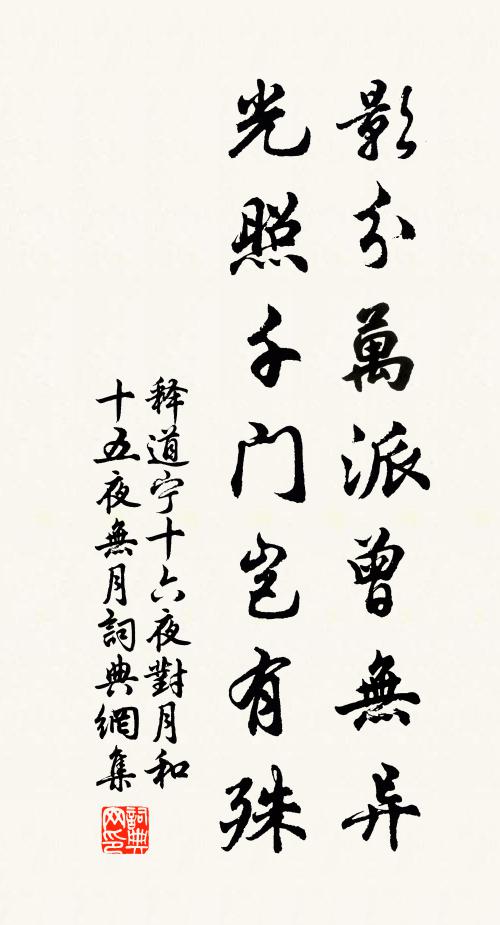 影分萬派曾無异
光照千门岂有殊
释道宁十六夜對月和
十五夜無月詞典網集
詞典网印